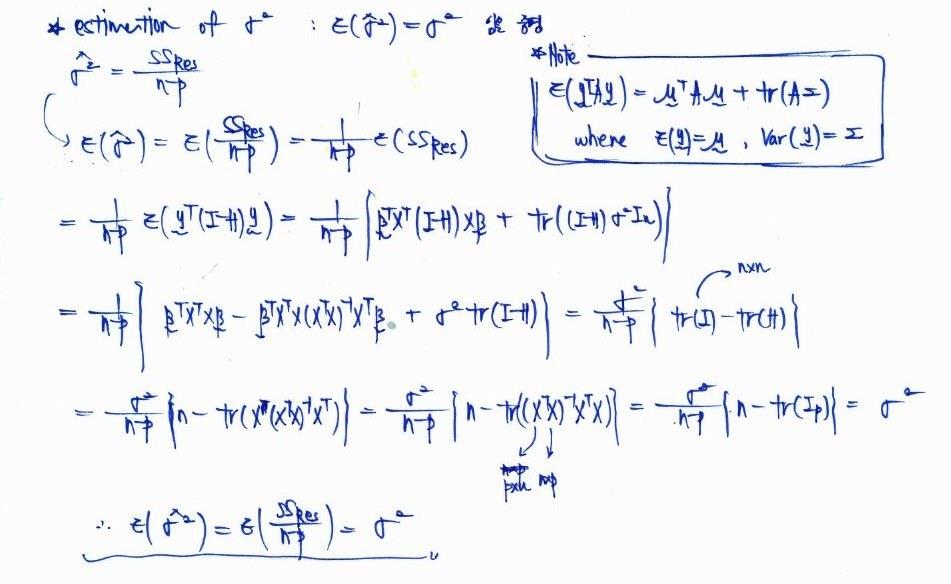 * estimation of σ² : E(σ̂²) = σ² 임을 증명
σ̂² = SSRes / n-p
* Note
E(yᵀAy) = μᵀAμ + tr(AΣ)
where E(y) = μ , Var(y) = Σ
E(σ̂²) = E(SSRes / n-p) = 1/n-p E(SSRes)
= 1/n-p E(yᵀ(I-H)y) = 1/n-p { βᵀXᵀ(I-H)Xβ + tr((I-H)σ²Iₙ) }
n×n
= 1/n-p { βᵀXᵀXβ - βᵀXᵀX(XᵀX)⁻¹Xᵀβ + σ² tr(I-H) } = σ²/n-p { tr(I) - tr(H) }
= σ²/n-p { n - tr(X(XᵀX)⁻¹Xᵀ) } = σ²/n-p { n - tr((XᵀX)⁻¹XᵀX) } = σ²/n-p { n - tr(Iₚ) } = σ²
p×n n×p
∴ E(σ̂²) = E(SSRes / n-p) = σ²